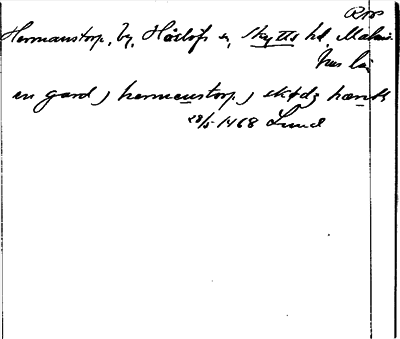 Or
Hermanstorp, by, Hässlöfs sn, Skytts hd, Malmö
hus län
en gard j hermenstorp j skötdz hæret
28/5 1468 Lund